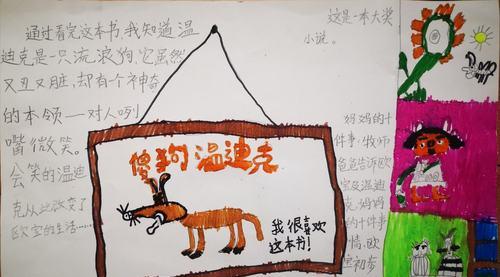 通过看完这本书,我知道温
迪克是一只流浪狗,它虽然
又丑又脏,却有个神奇
的本领——对人咧
嘴微笑。
会笑的温迪
克从此改变了
欧宝的生活……
这是一本大奖
小说。
傻狗温迪克
我很喜欢
这本书!
妈妈的十
件事,牧师
爸爸告诉欧
宝及温迪
克,妈妈
的十件事
情,欧
宝初夯